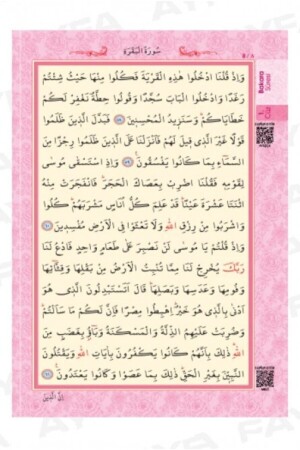 سُورَةُ الْبَقَرَةِ
٨ / 8
Bakara
Suresi
وَاِذْ قُلْنَا ادْخُلُوا هٰذِهِ الْقَرْيَةَ فَكُلُوا مِنْهَا حَيْثُ شِئْتُمْ
رَغَدًا وَادْخُلُوا الْبَابَ سُجَّدًا وَقُولُوا حِطَّةٌ نَغْفِرْ لَكُمْ
خَطَايَاكُمْ وَسَنَزِيدُ الْمُحْسِنِينَ فَبَدَّلَ الَّذِينَ ظَلَمُوا
قَوْلًا غَيْرَ الَّذِي قِيلَ لَهُمْ فَاَنْزَلْنَا عَلَى الَّذِينَ ظَلَمُوا رِجْزًا مِنَ
السَّمَاءِ بِمَا كَانُوا يَفْسُقُونَ وَاِذِ اسْتَسْقٰى مُوسٰى
لِقَوْمِهِ فَقُلْنَا اضْرِبْ بِعَصَاكَ الْحَجَرَ فَانْفَجَرَتْ مِنْهُ
اثْنَتَا عَشْرَةَ عَيْنًا قَدْ عَلِمَ كُلُّ اُنَاسٍ مَشْرَبَهُمْ كُلُوا
وَاشْرَبُوا مِنْ رِزْقِ اللهِ وَلَا تَعْثَوْا فِي الْاَرْضِ مُفْسِدِينَ
وَاِذْ قُلْتُمْ يَا مُوسٰى لَنْ نَصْبِرَ عَلٰى طَعَامٍ وَاحِدٍ فَادْعُ لَنَا
رَبَّكَ يُخْرِجْ لَنَا مِمَّا تُنْبِتُ الْاَرْضُ مِنْ بَقْلِهَا وَقِثَّائِهَا
وَفُومِهَا وَعَدَسِهَا وَبَصَلِهَا قَالَ اَتَسْتَبْدِلُونَ الَّذِي هُوَ
اَدْنٰى بِالَّذِي هُوَ خَيْرٌ اِهْبِطُوا مِصْرًا فَاِنَّ لَكُمْ مَا سَاَلْتُمْ
وَضُرِبَتْ عَلَيْهِمُ الذِّلَّةُ وَالْمَسْكَنَةُ وَبَاؤُ بِغَضَبٍ مِنَ
اللهِ ذٰلِكَ بِاَنَّهُمْ كَانُوا يَكْفُرُونَ بِاٰيَاتِ اللهِ وَيَقْتُلُونَ
النَّبِيِّنَ بِغَيْرِ الْحَقِّ ذٰلِكَ بِمَا عَصَوْا وَكَانُوا يَعْتَدُونَ
اِنَّ الَّذِينَ